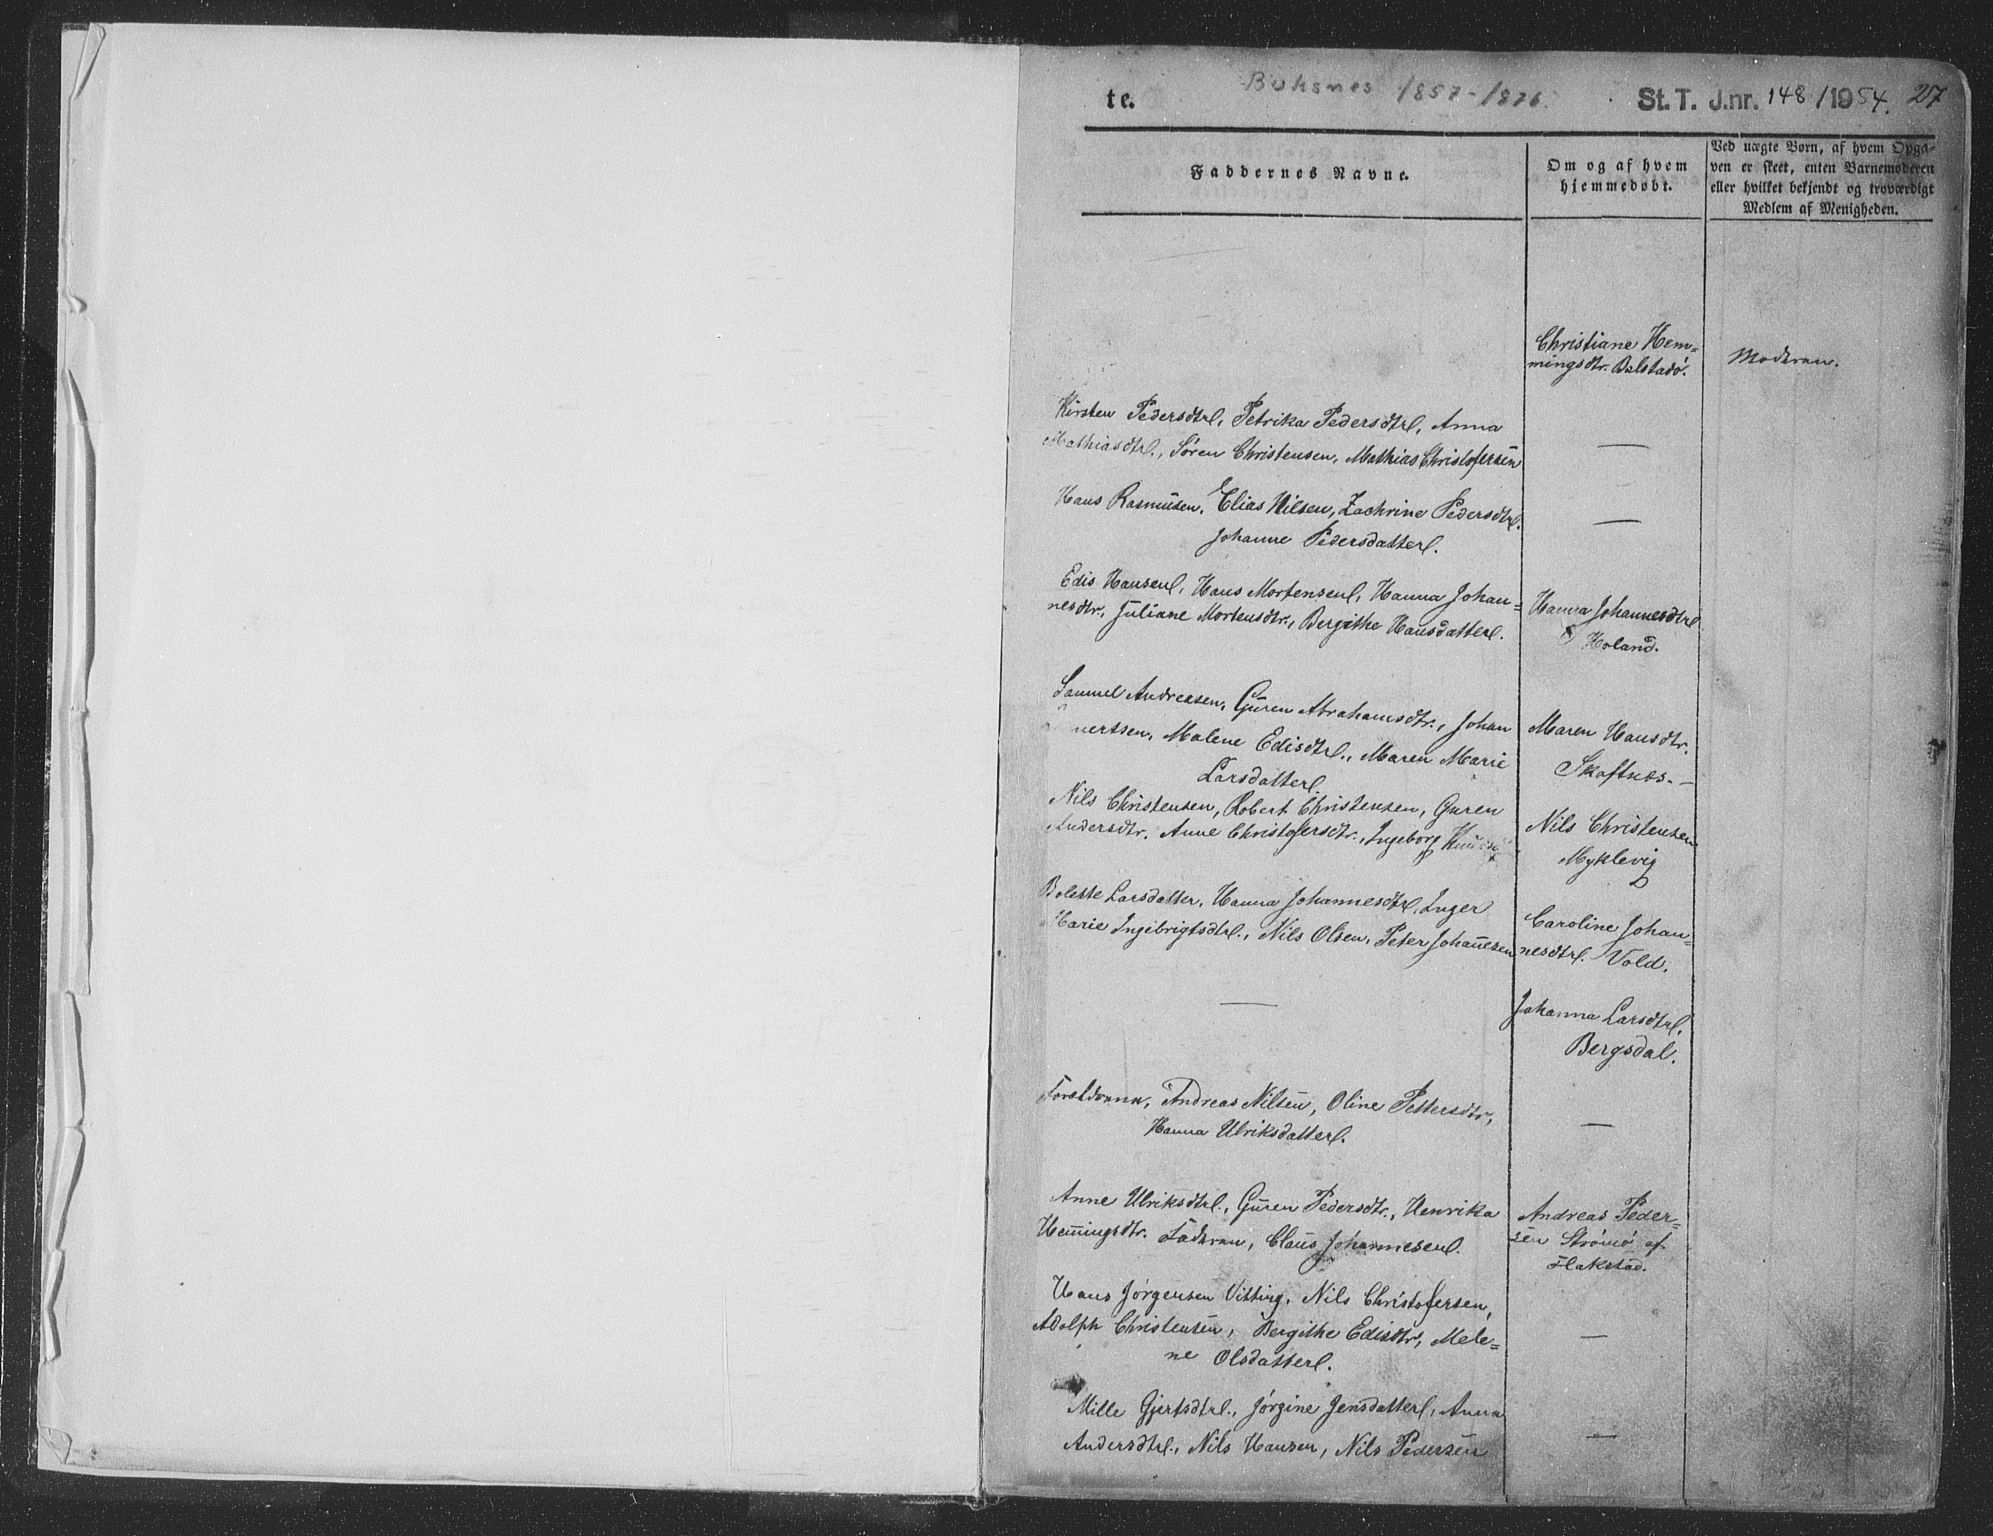 Buksnes 1857-1876.
te.
St. T. J.nr. 148/1954. 27
Faddernes Navne.
Om og af hvem
hjemmedøbt.
Ved uægte Børn, af hvem Opga-
ven er skeet, enten Barnemoderen
eller hvilket bekjendt og troværdigt
Medlem af Menigheden.
Christiane Hem=
mingsdtr. Balstadø.
Moderen.
Kirsten Pedersdtrl, Petrika Pedersdtrl, Anna
Mathiasdtrl., Søren Christensen, Mathias Christofersen
—
Hans Rasmusen, Elias Nilsen, Zachrine Pedersdtrl.
Johanne Pedersdatterl.
—
Edis Hansenl, Hans Mortensenl, Hanna Johan=
nesdtr., Juliane Mortensdtr., Bergithe Hansdatterl.
Hanna Johannesdtrl
Holand.
Samuel Andreasen, Guren Abrahamsdtr., Johan
Malene Edisdtrl., Maren Marie
Larsdatterl.
Maren Hansdtr.
Skaftnæs. —
Nils Christensen, Robert Christensen, Guren
Andersdtr. Anne Christofersdtr., Ingeborg
Nils Christensen
Myklevig
Bolette Larsdatter, Hanna Johannesdtrl, Inger
Marie Ingebrigtsdtrl., Nils Olsen, Peter Johannesen
Caroline Johan=
nesdtrl. Vold.
—
Johanna Larsdtrl.
Bergsdal.
Forældrene, Andreas Nilsen, Oline Pettersdtr,
Hanna Ulriksdatterl.
—
Anne Ulriksdtrl., Guren Pedersdtr., Henrika
Hemingsdtr. Faderen, Claus Johannesenl.
Andreas Peder=
sen Strømø af
Flakstad.
Hans Jørgensen Vitting, Nils Christofersen,
Adolph Christensen, Bergithe Edisdtr, Mele=
ne Olsdatterl.
—
Mille Gjertsdtrl., Jørgine Jensdatterl, Anna
Andersdtrl., Nils Hansen, Nils Pedersen
—